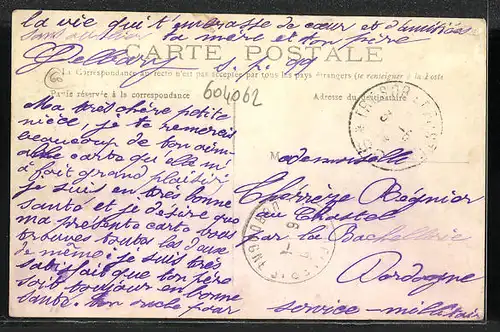 la vie qui t'embrasse de cœur et d'amitiés
sans oublier ta mère et ton père
CARTE POSTALE
S. P. 99
La Correspondance au recto n'est pas acceptée par tous les pays étrangers (se renseigner à la Poste
Partie réservée à la correspondance
Adresse du destinataire
604062
Ma très chère petite
nièce, je te remercie
beaucoup de ton aima
ble carte qu'elle m'a
fait grand plaisir
je suis en très bonne
santé et je désire que
ma présente carte vous
trouves toutes les deux
de même. je suis très
satisfait que ton père
soit toujours en bonne
santé. ton oncle pour
TRESOR ET POSTES
Mademoiselle
Thérèze Régnier
au Chastel
par la Bachellerie
Dordogne
service militaire